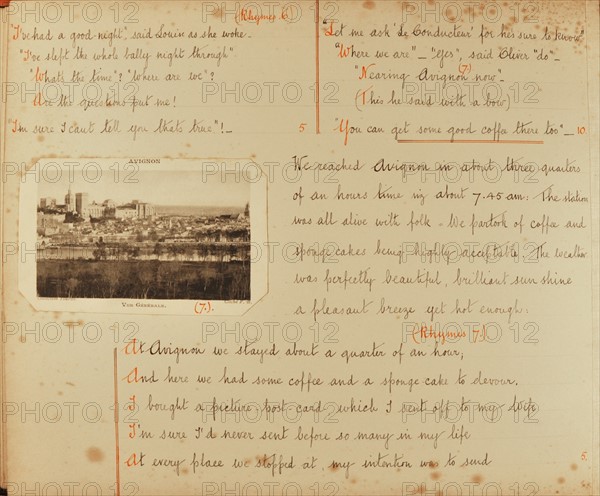 (Rhymes 6.
"I've had a good night", said Louie as she woke.
"I've slept the whole bally night through"
"What's the time"? "Where are we"?
Are the questions put me!
"I'm sure I can't tell you that's true"! _ 5
"Let me ask 'Le Conducteur' for he's sure to know"
"Where we are" _ "yes", said Oliver "do" _
"Nearing Avignon now" _
(7)
(This he said with a bow)
"You can get some good coffa there too" _ 10.
AVIGNON
VUE GÉNÉRALE.
(7.).
We reached Avignon in about three quarters
of an hours time viz about 7.45 am: The station
was all alive with folk. We partook of coffee and
sponge cakes being highly acceptable. The weather
was perfectly beautiful, brilliant sun shine
a pleasant breeze yet not enough:
(Rhymes 7.)
At Avignon we stayed about a quarter of an hour,
And here we had some coffee and a sponge cake to devour.
I bought a picture post card, which I sent off to my wife
I'm sure I'd never sent before so many in my life
At every place we stopped at, my intention was to send 5.